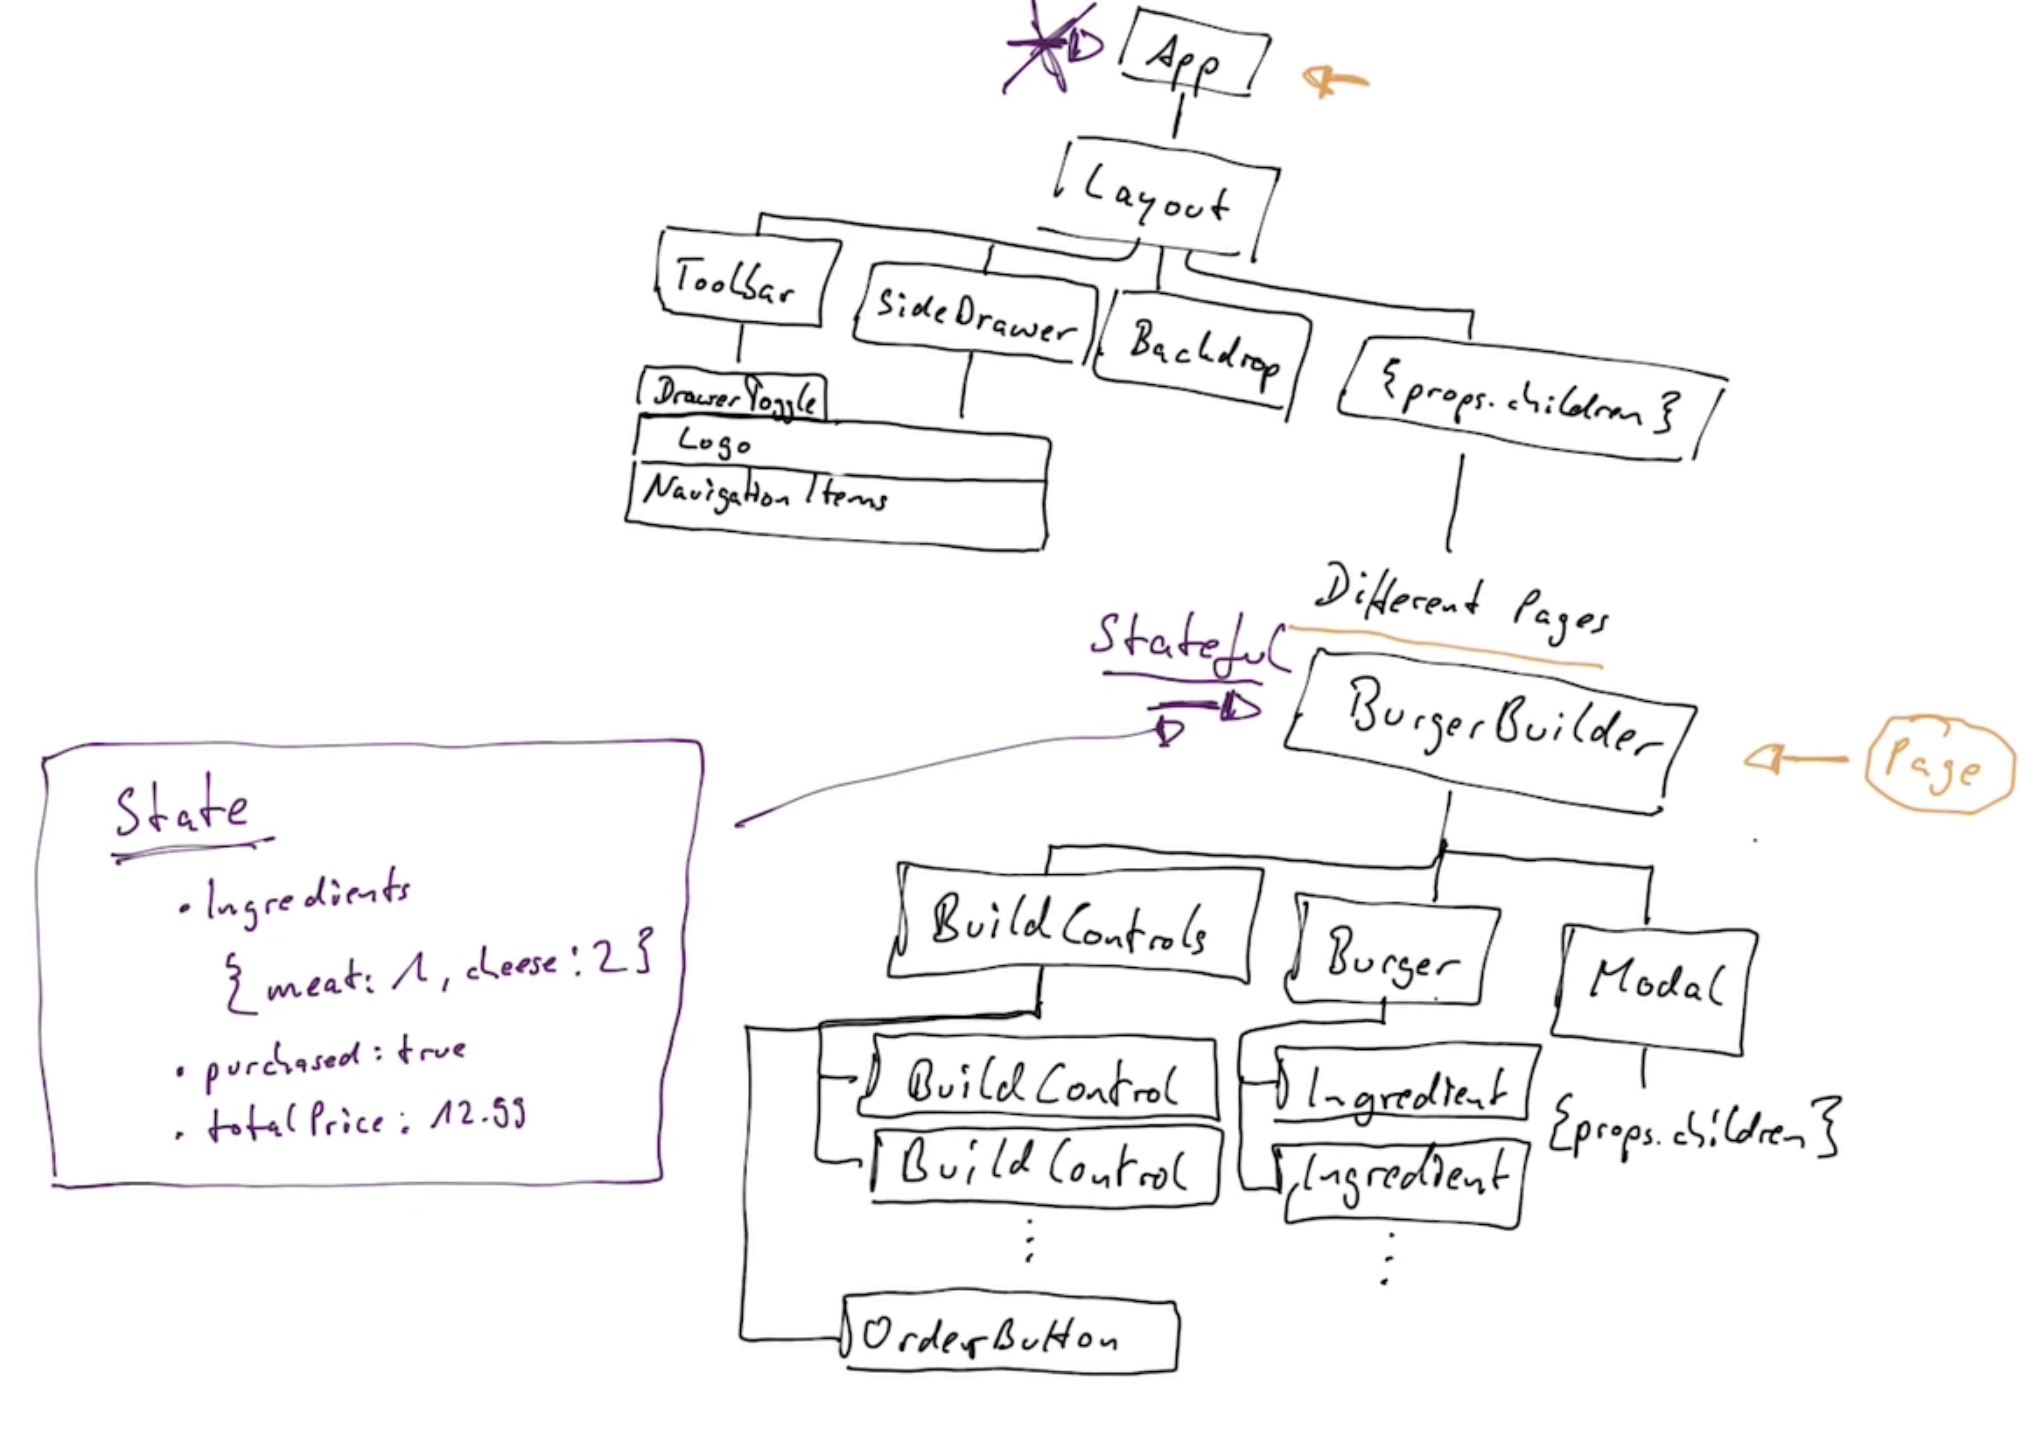 App
Layout
Toolbar
SideDrawer
Backdrop
{props.children}
DrawerToggle
Logo
Navigation Items
Different Pages
Stateful
BurgerBuilder
Page
State
• Ingredients
{meat: 1, cheese: 2}
• purchased: true
• totalPrice: 12.99
BuildControls
Burger
Modal
BuildControl
Ingredient
{props.children}
BuildControl
Ingredient
⋮
⋮
OrderButton